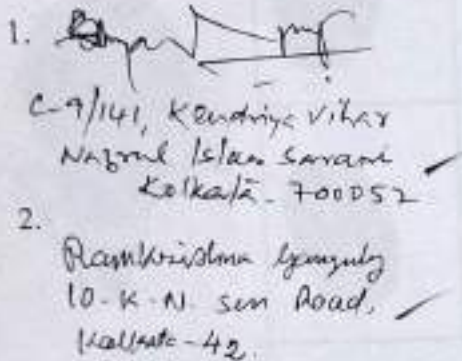 1.
C-9/141, Kendriya Vihar
Nazrul Islam Sarani
Kolkata - 700052
2.
Ramkrishna Ganguly
10-K-N. sen Road,
Kolkata - 42.